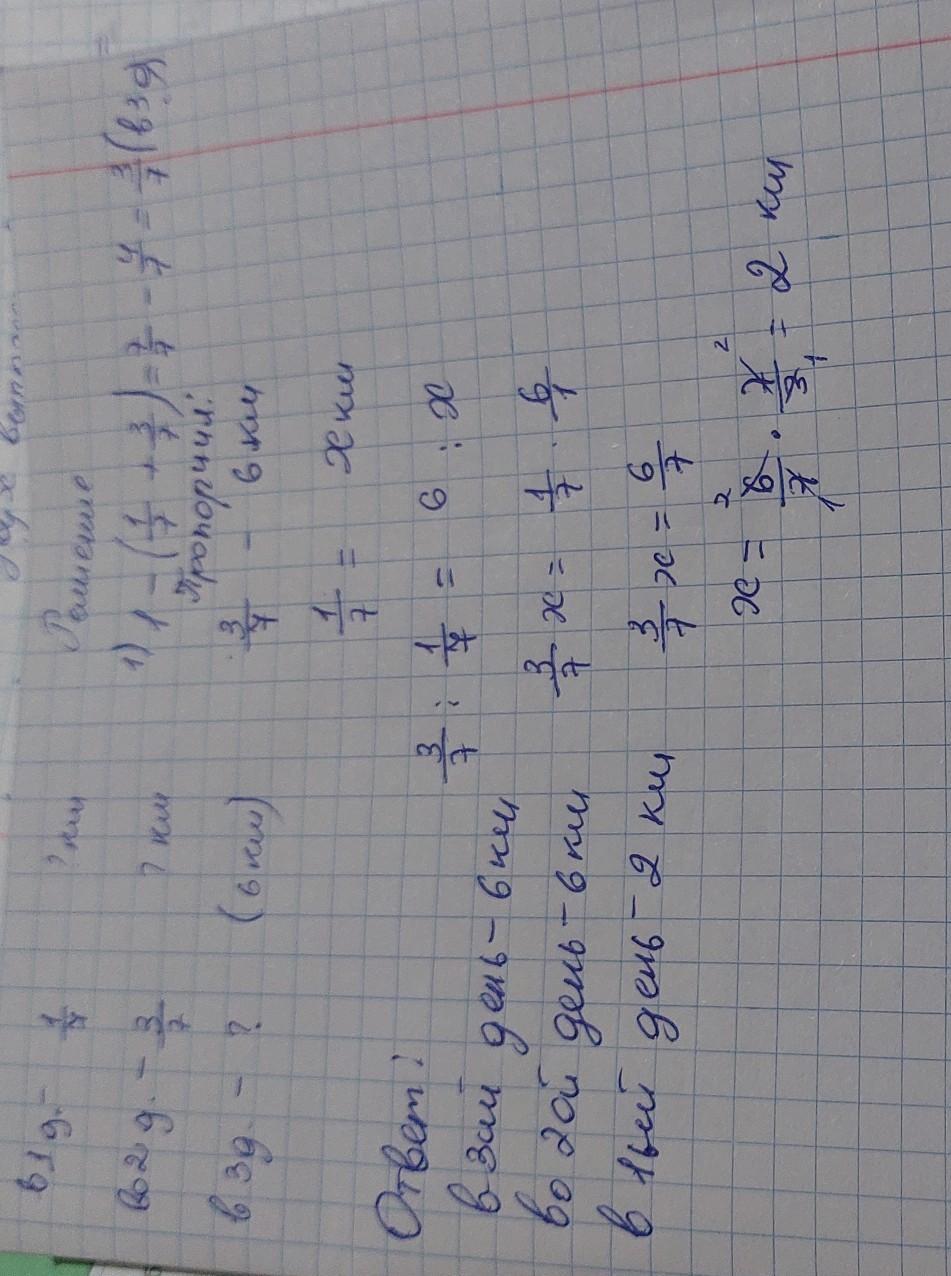 в 1 д. - 1/7 ? км
во 2 д. - 3/7 ? км
в 3 д. - ? (6 км)
Решение
1) 1 - (1/7 + 3/7) = 7/7 - 4/7 = 3/7 (в 3 д)
Пропорции:
3/7 - 6 км
1/7 = x км
3/7 : 1/7 = 6 : x
3/7 x = 1/7 · 6/1
3/7 x = 6/7
x = 6/7 · 7/3 = 2 км
Ответ:
в 3ий день - 6 км
во 2ой день - 6 км
в 1ый день - 2 км